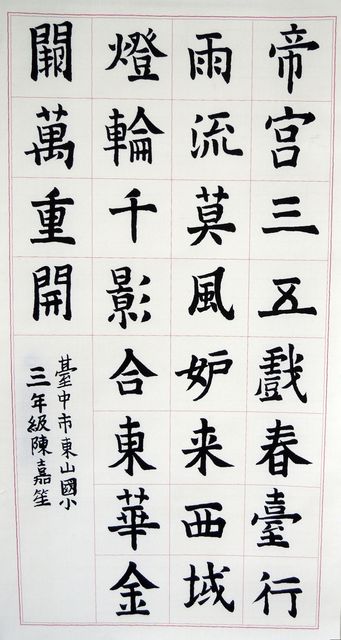 帝宮三五戲春臺行
雨流莫風妒来西域
燈輪千影合東華金
闕萬重開
臺中市東山國小
三年級陳嘉笙